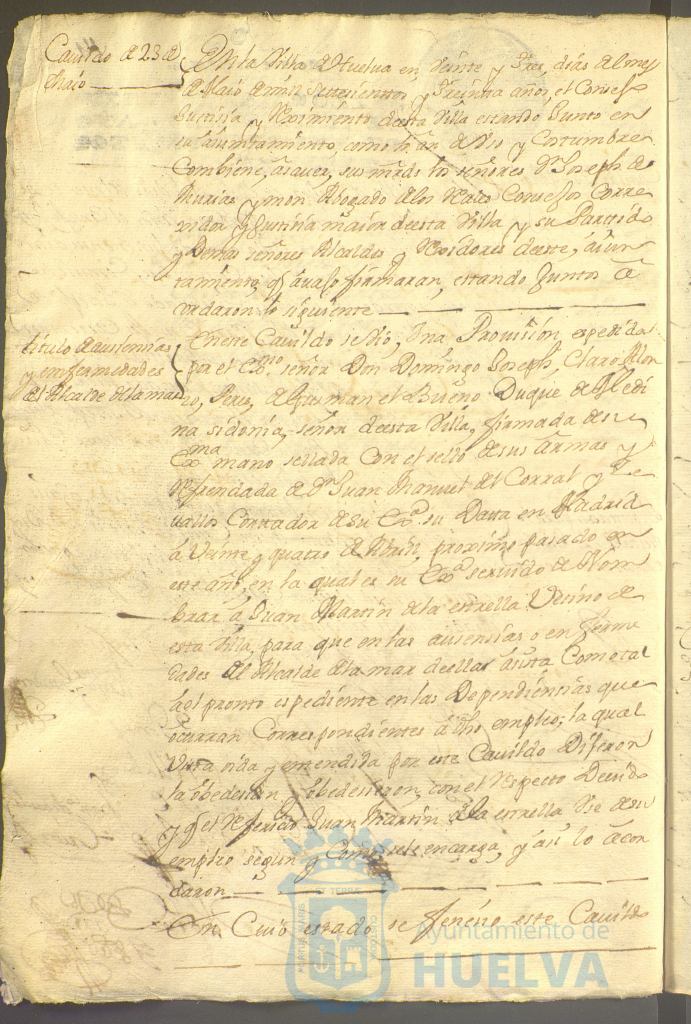 Cavildo de 23 de
Maio
En la Villa de Huelva en Veinte y tres, dias del mes
de Maio de mil settezienttos y treintta años, el Consejo
Justizia y Reximiento de esta Villa estando Junto en
su aiunttamiento, como lo an de Vso y Costumbre
Combiene, a saver, sus mrds los señores Dn Joseph de
y mon Abogado de los Reales Consejos Corre
xidor y Justizia maior de esta Villa y su Partido
y Demas señores Alcaldes y Rexidores de este, aiun
tamiento, q avajo firmaran, estando Juntos a
cordaron lo siguiente
titulo de ausenzias
y enfermedades
del Alcalde de la mar
En este Cavildo se Vio, Vna Provision expedida
por el Exmo señor Don Domingo Joseph, Claro Alon
so, Peres, de Gusman el Bueno Duque de Medi
na sidonia, señor de esta Villa, firmada de su
Exma mano sellada Con el sello de sus Armas y
Refrendada de Dn Juan Manuel del Corral y
Conttador de su Exa su Datta en Madrid
a Veinte y quatro de Abril, proximo pasado en
este año, en la qual es su Exa servido de Nom
brar a Juan Martin de la estrella Vecino de
esta Villa, para que en las ausensias o enferme
dades del Alcalde de la mar de ella asista Como tal
al pronto expediente en las Dependiensias que
ocurran Correspondientes a dho empleo; la qual
Vista oida y entendida por este Cavildo Dijeron
la obedesian y obedesieron, con el Respecto Devido
y q el Referido Juan Martin de la estrella Vse de su
empleo segun y Como se le encarga, y asi lo acor
daron
En Cuio estado se feneció este Cavildo
ET TERRAE
Ayuntamiento de
HUELVA